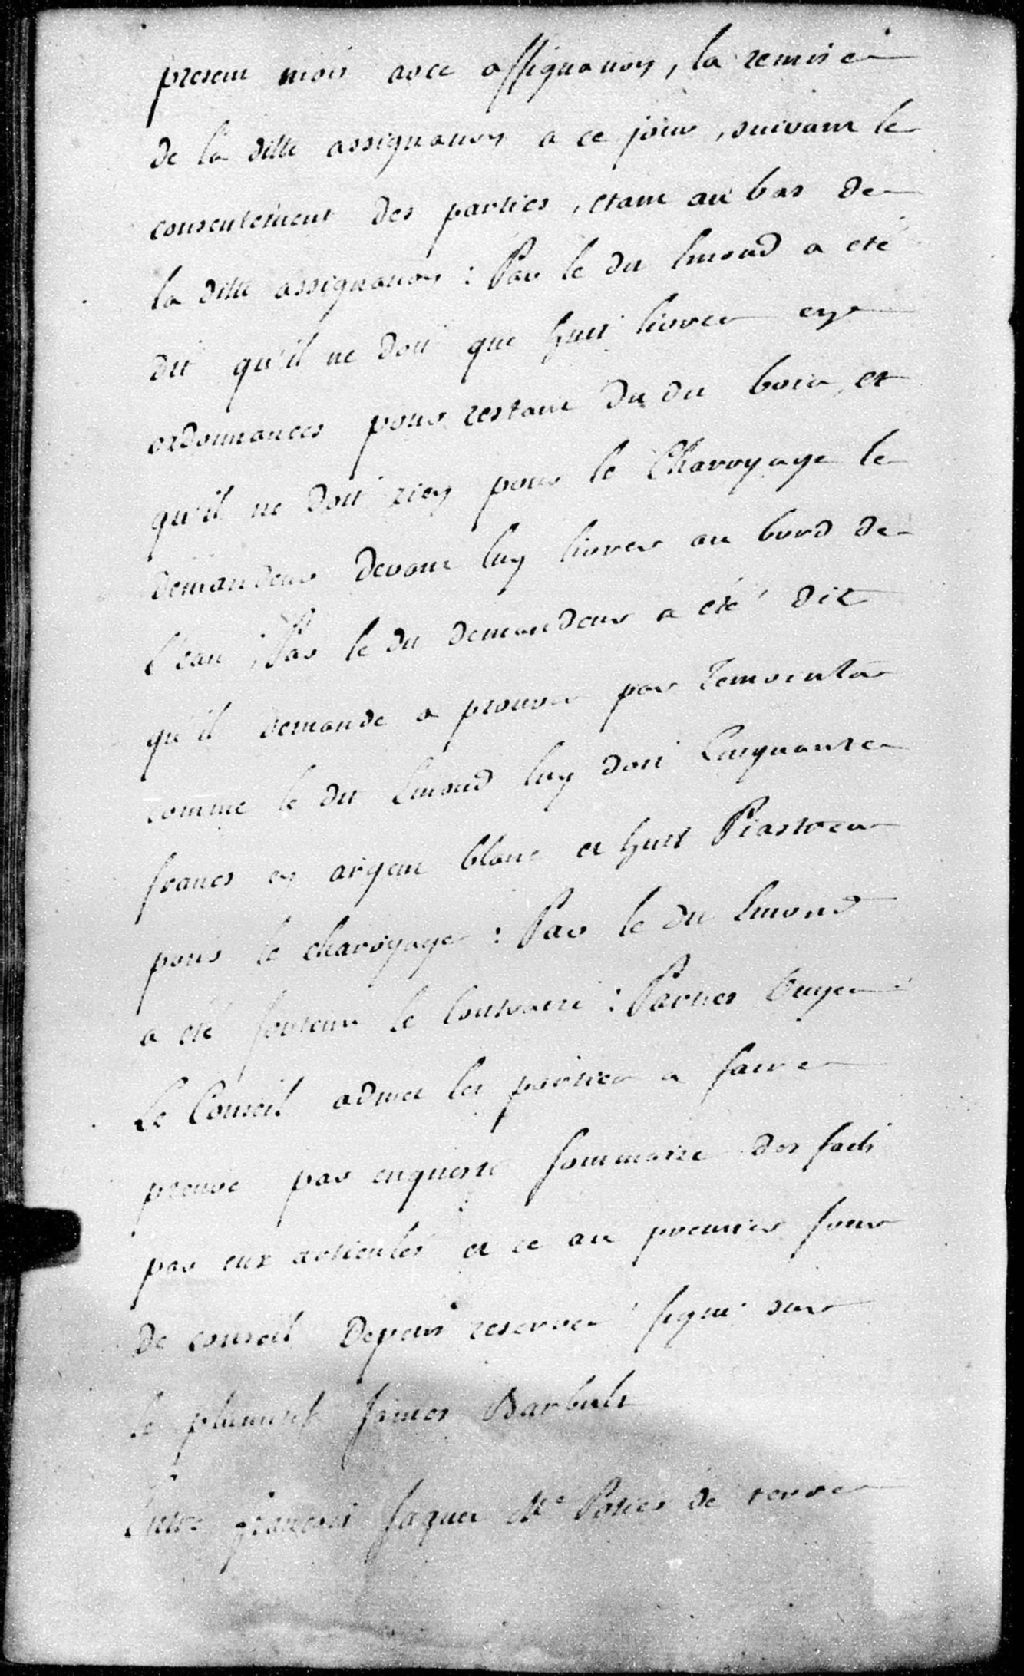 present mois avec assignation, la remise
de la ditte assignation a ce jour, suivant le
consentement des parties, etant au bas de
la ditte assignation : Par le dit Emond a eté
dit qu'il ne doit que huit livres en
ordonnances pour restant du du bois, et
qu'il ne doit rien pour le Charoyage le
demandeur devant luy livrer au bord de
l'eau, Par le dit demandeur a eté dit
qu'il demande a prouver par Temoins
comme le dit Emond luy doit Cinquante
francs en argent blanc et huit Piastres
pour le charoyage : Par le dit Emond
a eté soutenu le Contraire : Parties Ouyes
Le Conseil admet les parties a faire
preuve par enqueste sommaire des faits
par eux articulés et ce au premier jour
de conseil Depens reservés signé sur
le plumitif
Entre françois Jaques Me Potier de terre